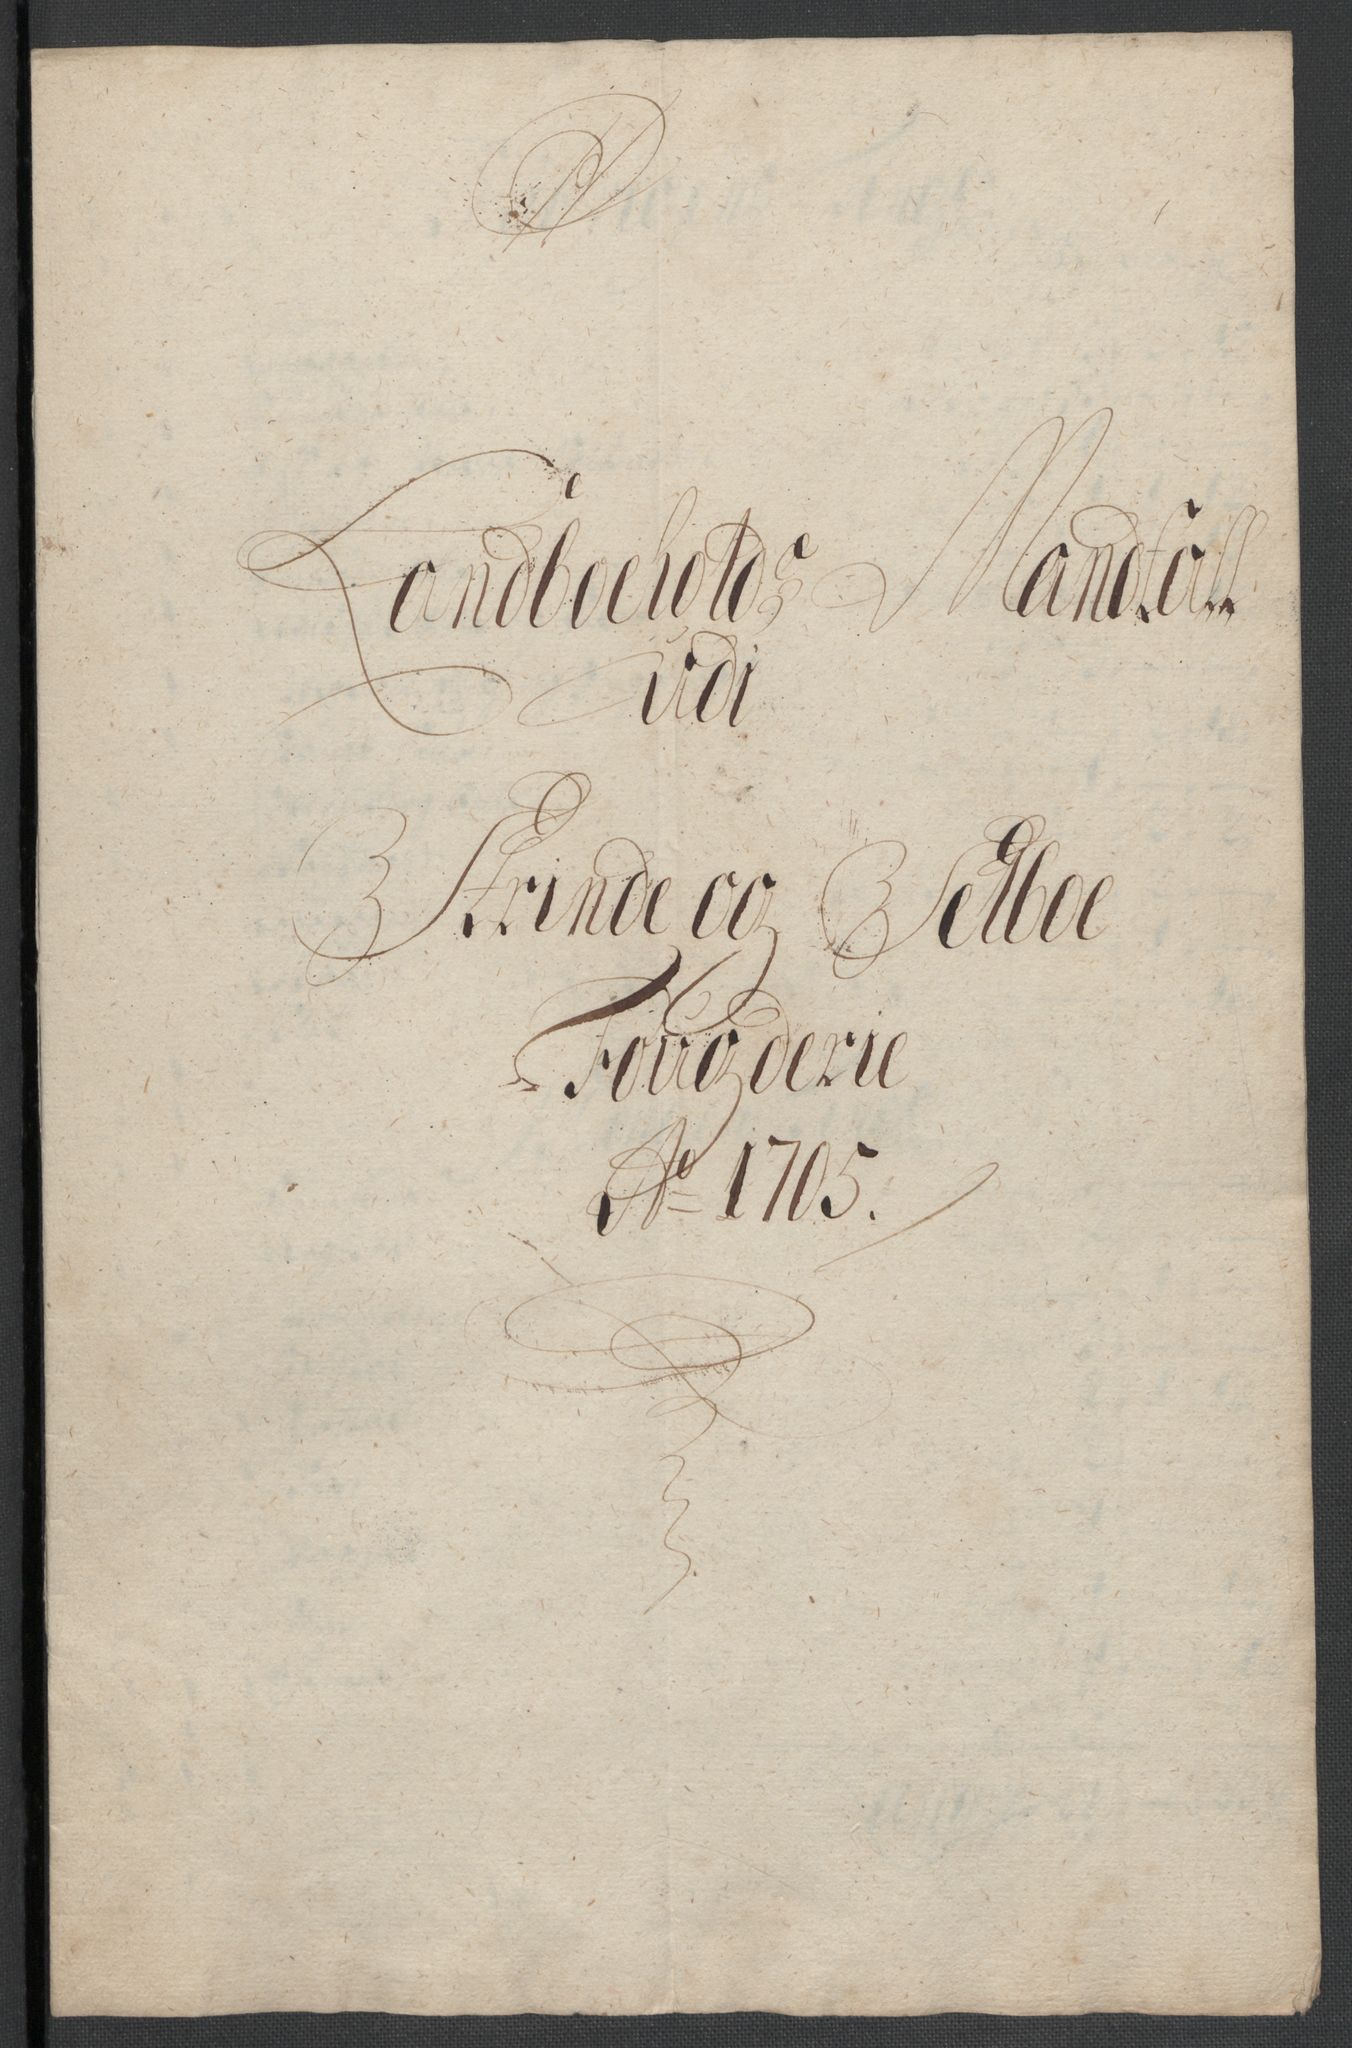 Landboeholds Mandtall
udi
Strinde og Selboe
Fougderie
Ao 1705.